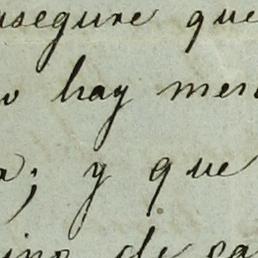 asegure que
o hay men
a; y que
ino de ca